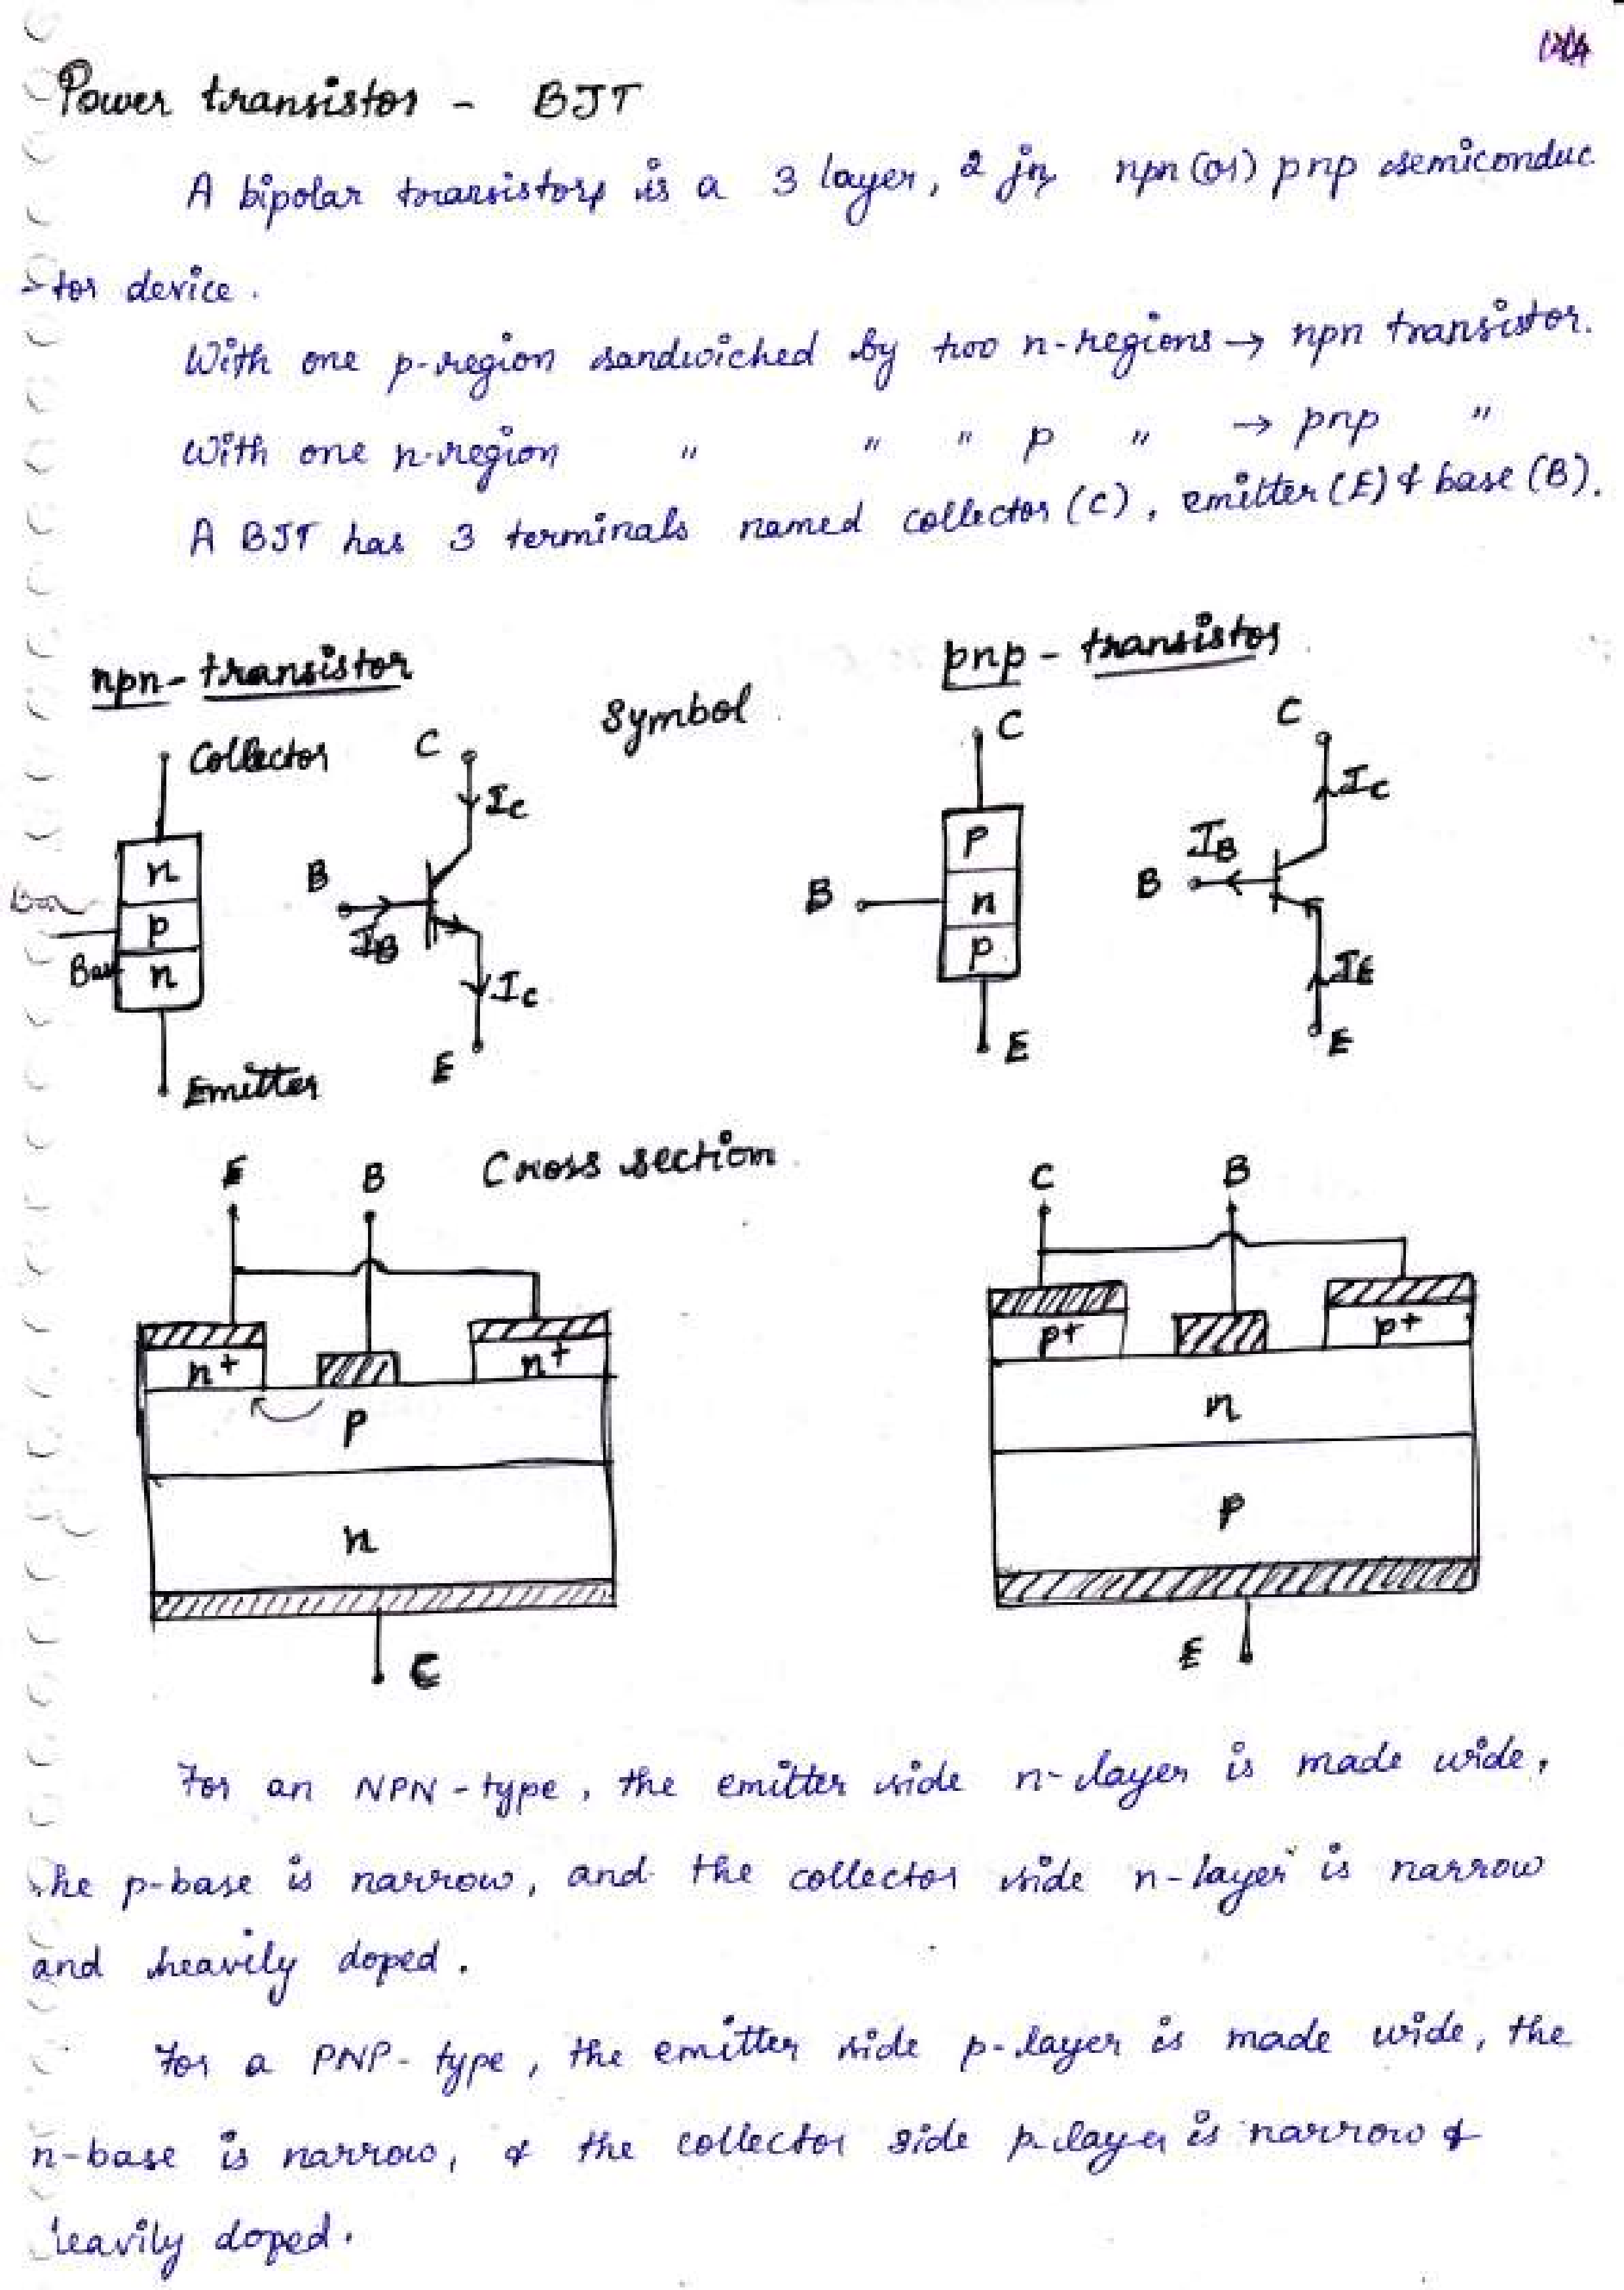 Power transistor - BJT
A bipolar transistor is a 3 layer, 2 jn npn (or) pnp semiconduc
tor device.
With one p-region sandwiched by two n-regions → npn transistor.
With one n-region " " " p " → pnp "
A BJT has 3 terminals named collector (C), emitter (E) & base (B).
npn - transistor
pnp - transistor
Symbol
Collector
C
C
C
Ic
Ic
n
p
n
Base
B
IB
Ic
E
Emitter
p
n
p
B
E
IB
B
IE
E
Cross section
E B
C B
n+ n+
p+ p+
p
n
n
p
C
E
For an NPN - type, the emitter side n-layer is made wide,
the p-base is narrow, and the collector side n-layer is narrow
and heavily doped.
For a PNP - type, the emitter side p-layer is made wide, the
n-base is narrow, & the collector side p-layer is narrow &
heavily doped.